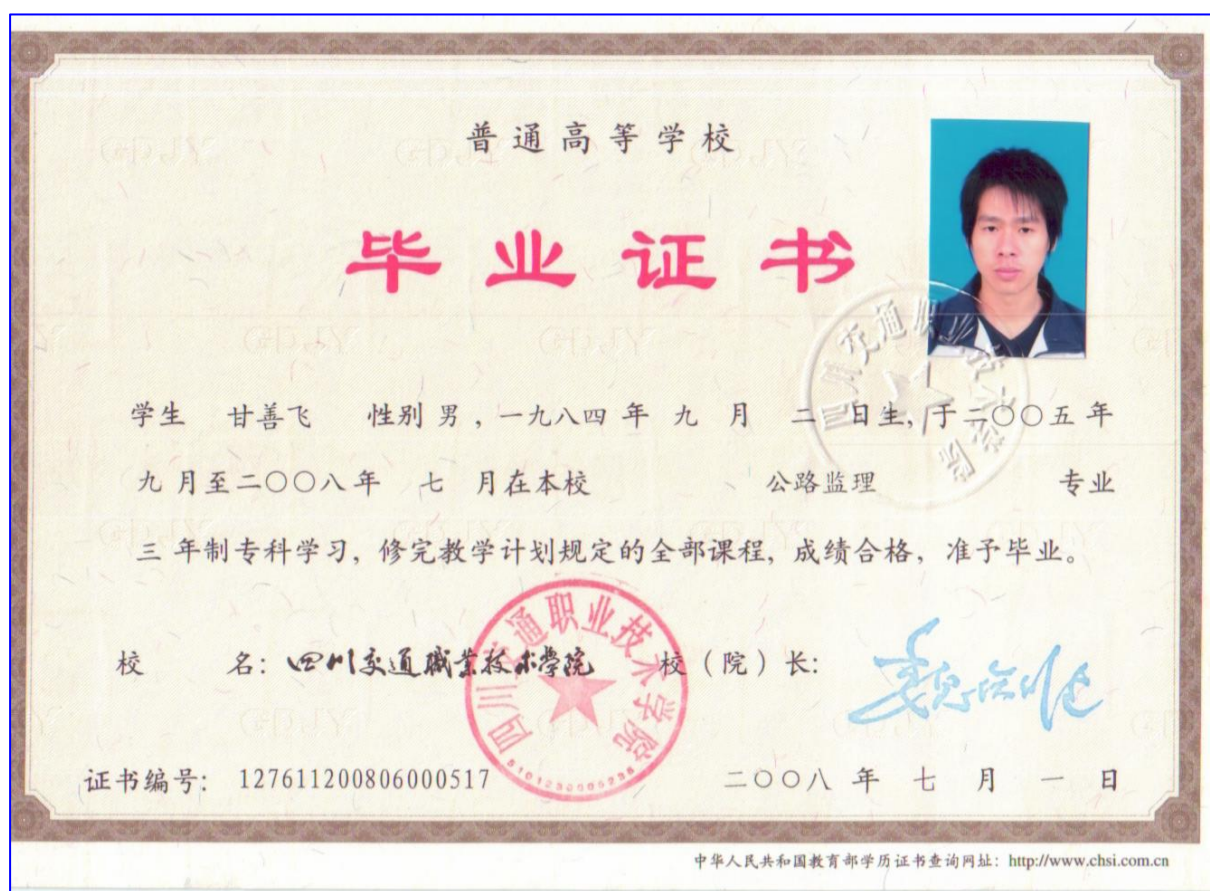 普通高等学校
毕业证书
学生 甘善飞 性别 男，一九八四 年 九 月 二 日生，于二〇〇五 年
九 月至二〇〇八 年 七 月在本校 公路监理 专业
三 年制专科学习，修完教学计划规定的全部课程，成绩合格，准予毕业。
校 名：四川交通職業技术學院 校（院）长：
四川交通职业技术学院
四川交通职业技术学院
证书编号：127611200806000517 二〇〇八 年 七 月 一 日
中华人民共和国教育部学历证书查询网址：http://www.chsi.com.cn